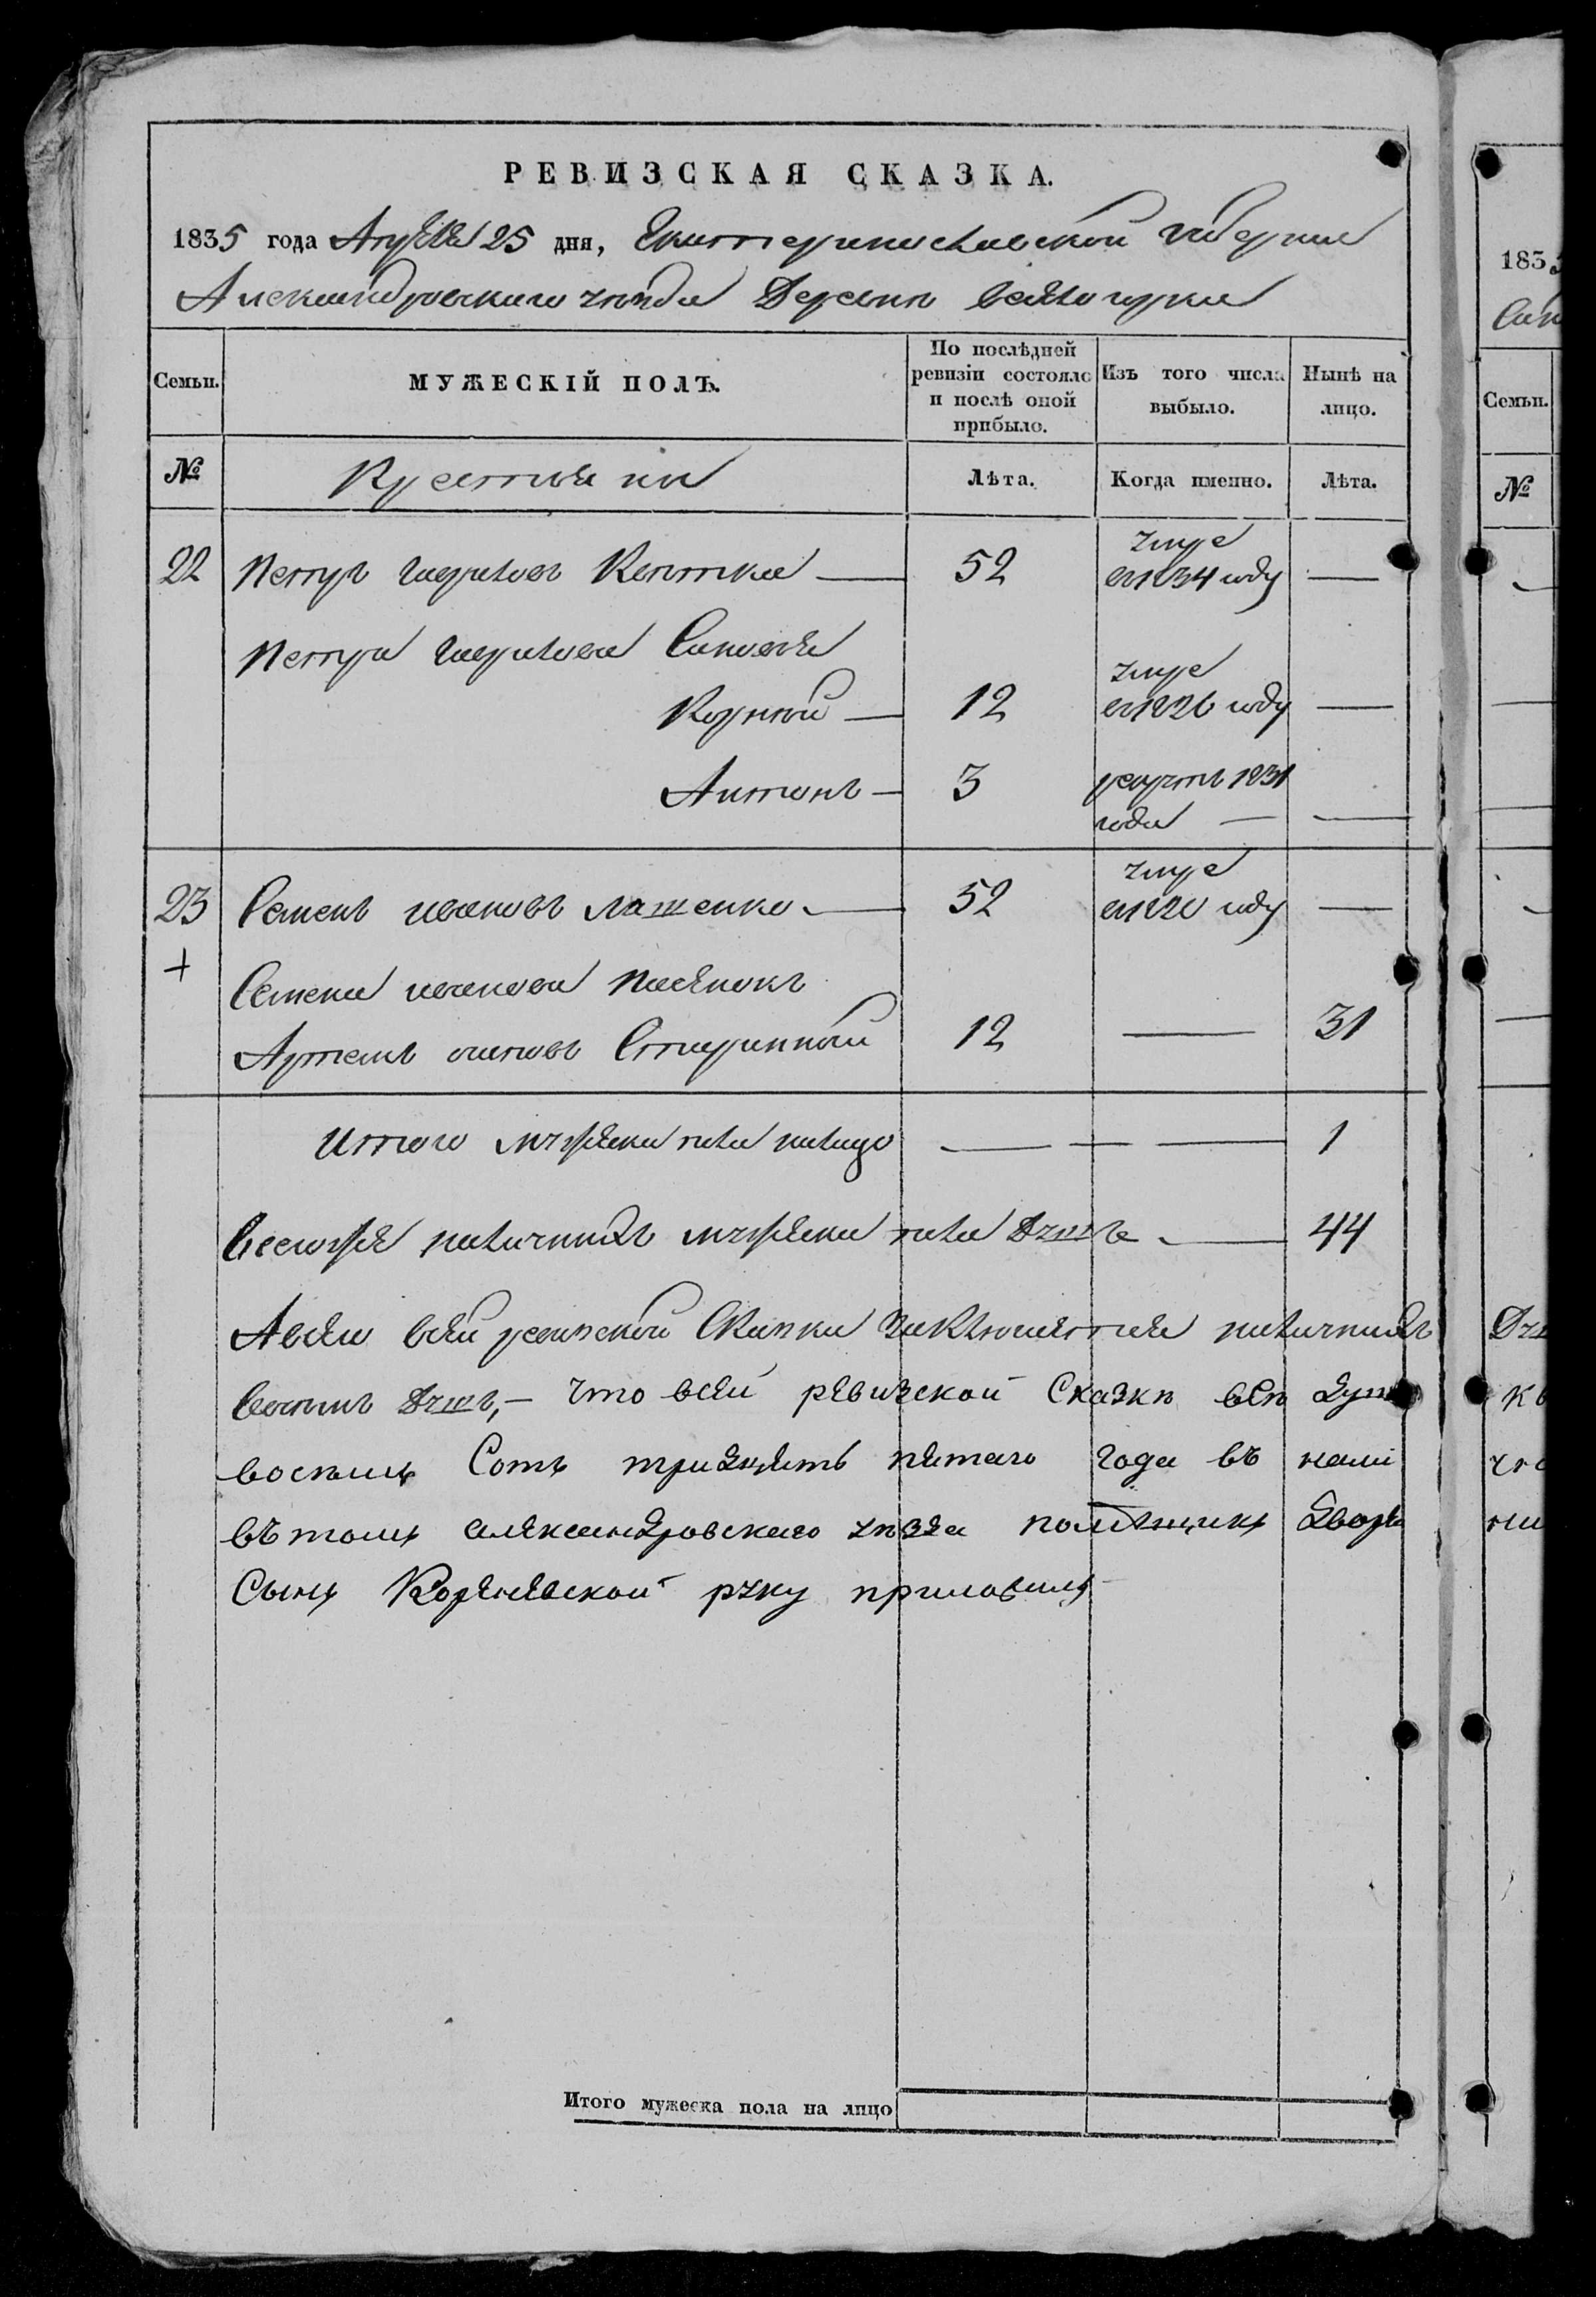 РЕВИЗСКАЯ СКАЗКА.
1835 года Апреля 25 дня, Екатеринославской губернии
Александровского уезда Деревни
Семьи.
МУЖЕСКІЙ ПОЛЪ.
По послѣдней ревизіи состояло и послѣ оной прибыло.
Изъ того числа выбыло.
Нынѣ на лицо.
№
Крестьяни
Лѣта.
Когда именно.
Лѣта.
22 Петръ Гаврилов 52 умре в 1834 году —
Петра Гаврилова Сыновья
Корной — 12 умре в 1826 году —
Антонъ — 3 рекрутъ 1831 года — —
23 Семенъ Иванов Лашенко — 52 умре в 1820 году —
+
Семена Иванова Пасынокъ
Артемъ Осипов 12 — 31
Итого мужеска пола налицо — — — 1
Всегоже наличныхъ мужеска пола душъ — 44
А всего всей ревиской Сказки заключается наличныхъ
душъ, — Что всей ревизской Сказки все душ
восемь Сотъ тридцать пятаго года въ
въ томъ александровскаго уезда помещикъ
Сынъ руку приложилъ
Итого мужеска пола на лицо
183
Семьи.
№